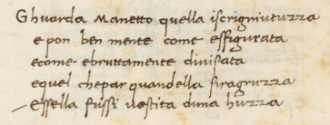 Ghuarda Manetto quella iscrigniutuzza
e pon ben mente come effigurata
ecome ebruttamente diuisata
equel chepar quandella siragruzza
Essella fussi uestita duna huzza